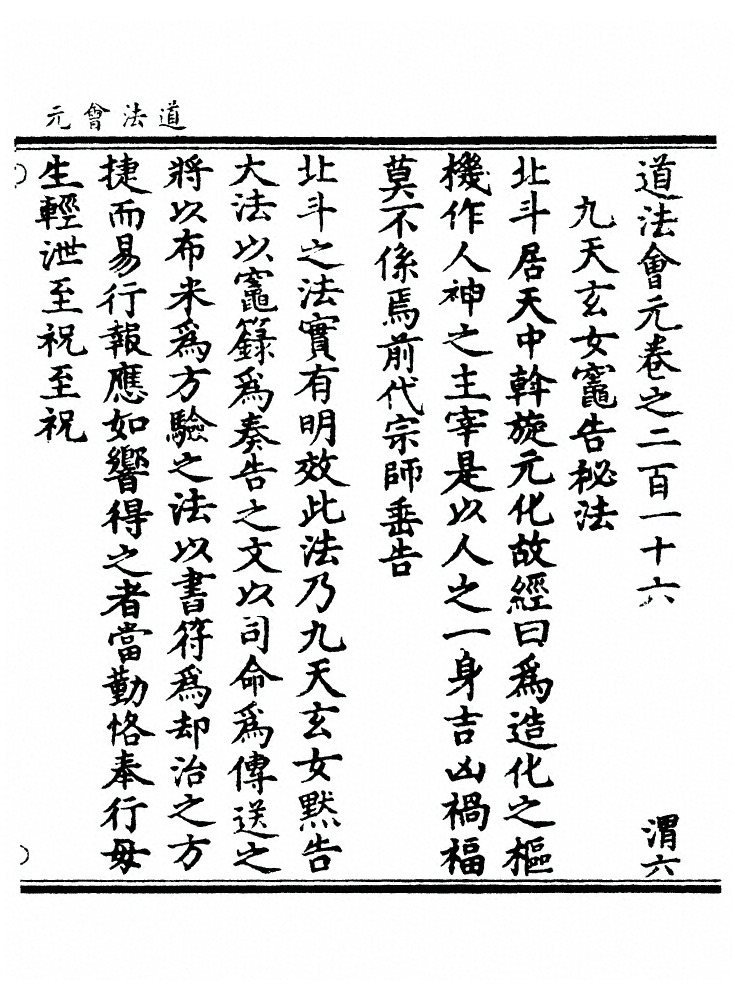 道法會元
道法會元卷之二百一十六
渭六
九天玄女竈告秘法
北斗居天中斡旋元化故經曰爲造化之樞
機作人神之主宰是以人之一身吉凶禍福
莫不係焉前代宗師垂告
北斗之法實有明效此法乃九天玄女默告
大法以竈籙爲奏告之文以司命爲傳送之
將以布米爲方驗之法以書符爲却治之方
捷而易行報應如響得之者當勤恪奉行毋
生輕泄至祝至祝